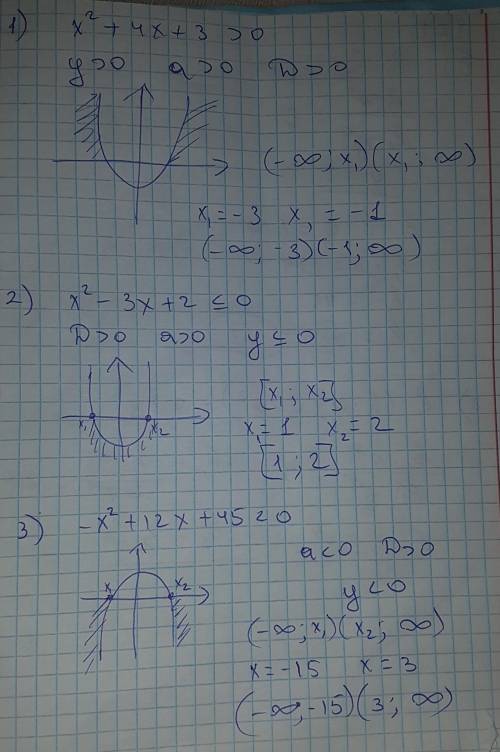 1) x² + 4x + 3 > 0
y > 0 a > 0 D > 0
(-∞; x₁)(x₁; ∞)
x₁ = -3 x₁ = -1
(-∞; -3)(-1; ∞)
2) x² - 3x + 2 ≤ 0
D > 0 a > 0 y ≤ 0
x₁ x₂
[x₁; x₂]
x₁ = 1 x₂ = 2
[1; 2]
3) -x² + 12x + 45 < 0
a < 0 D > 0
x₁ x₂
y < 0
(-∞; x₁)(x₂; ∞)
x = -15 x = 3
(-∞; -15)(3; ∞)